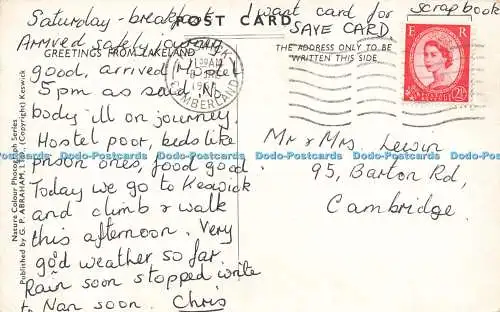 Saturday - breakfast I want card for scrapbook
POST CARD SAVE CARD
Arrived safely
GREETINGS FROM LAKELAND
THE ADDRESS ONLY TO BE
WRITTEN THIS SIDE
E R
POSTAGE REVENUE
2½D
CUMBERLAND
good, arrived
5pm as said. No
body ill on journey.
Hostel poor, beds like
prison ones, food good
Today we go to Keswick
and climb & walk
this afternoon. Very
good weather so far
Rain soon stopped write
to Nan soon. Chris
Mr & Mrs. Lewin
95, Barton Rd,
Cambridge.
Nature Colour Photograph Series
Published by G. P. ABRAHAM, LTD., (Copyright) Keswick
Dodo-Postcards Dodo-Postcards Dodo-Postcards Dodo-Postcards Dodo-Postcards Dodo-Postcards